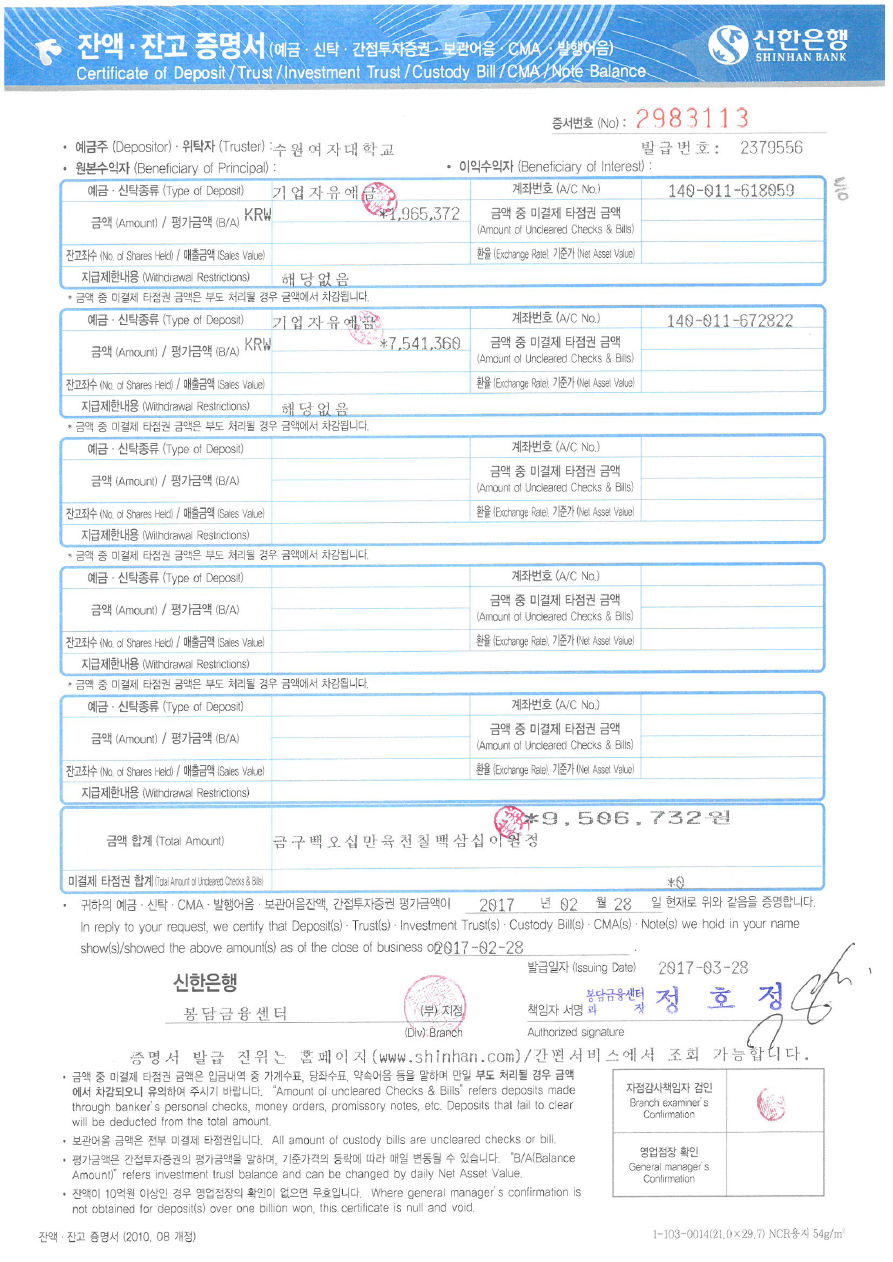 잔액·잔고 증명서 (예금·신탁·간접투자증권·보관어음·CMA·발행어음)
Certificate of Deposit/Trust/Investment Trust/Custody Bill/CMA/Note Balance
신한은행
SHINHAN BANK
증서번호 (No) : 2983113
• 예금주 (Depositor)·위탁자 (Truster) : 수원여자대학교
발급번호: 2379556
• 원본수익자 (Beneficiary of Principal) :
• 이익수익자 (Beneficiary of Interest) :
예금·신탁종류 (Type of Deposit) 기업자유예금 계좌번호 (A/C No.) 140-011-618059
금액 (Amount) / 평가금액 (B/A) KRW *1,965,372 금액 중 미결제 타점권 금액
(Amount of Uncleared Checks & Bills)
잔고좌수 (No. of Shares Held) / 매출금액 (Sales Value) 환율 (Exchange Rate), 기준가 (Net Asset Value)
지급제한내용 (Withdrawal Restrictions) 해당없음
* 금액 중 미결제 타점권 금액은 부도 처리될 경우 금액에서 차감됩니다.
예금·신탁종류 (Type of Deposit) 기업자유예금 계좌번호 (A/C No.) 140-011-672822
금액 (Amount) / 평가금액 (B/A) KRW *7,541,360 금액 중 미결제 타점권 금액
(Amount of Uncleared Checks & Bills)
잔고좌수 (No. of Shares Held) / 매출금액 (Sales Value) 환율 (Exchange Rate), 기준가 (Net Asset Value)
지급제한내용 (Withdrawal Restrictions) 해당없음
* 금액 중 미결제 타점권 금액은 부도 처리될 경우 금액에서 차감됩니다.
예금·신탁종류 (Type of Deposit) 계좌번호 (A/C No.)
금액 (Amount) / 평가금액 (B/A) 금액 중 미결제 타점권 금액
(Amount of Uncleared Checks & Bills)
잔고좌수 (No. of Shares Held) / 매출금액 (Sales Value) 환율 (Exchange Rate), 기준가 (Net Asset Value)
지급제한내용 (Withdrawal Restrictions)
* 금액 중 미결제 타점권 금액은 부도 처리될 경우 금액에서 차감됩니다.
예금·신탁종류 (Type of Deposit) 계좌번호 (A/C No.)
금액 (Amount) / 평가금액 (B/A) 금액 중 미결제 타점권 금액
(Amount of Uncleared Checks & Bills)
잔고좌수 (No. of Shares Held) / 매출금액 (Sales Value) 환율 (Exchange Rate), 기준가 (Net Asset Value)
지급제한내용 (Withdrawal Restrictions)
* 금액 중 미결제 타점권 금액은 부도 처리될 경우 금액에서 차감됩니다.
예금·신탁종류 (Type of Deposit) 계좌번호 (A/C No.)
금액 (Amount) / 평가금액 (B/A) 금액 중 미결제 타점권 금액
(Amount of Uncleared Checks & Bills)
잔고좌수 (No. of Shares Held) / 매출금액 (Sales Value) 환율 (Exchange Rate), 기준가 (Net Asset Value)
지급제한내용 (Withdrawal Restrictions)
*9,506,732원
금액 합계 (Total Amount) 금구백오십만육천칠백삼십이원정
미결제 타점권 합계 (Total Amount of Uncleared Checks & Bills) *0
• 귀하의 예금·신탁·CMA·발행어음·보관어음잔액, 간접투자증권 평가금액이 2017 년 02 월 28 일 현재로 위와 같음을 증명합니다.
In reply to your request, we certify that Deposit(s)·Trust(s)·Investment Trust(s)·Custody Bill(s)·CMA(s)·Note(s) we hold in your name
show(s)/showed the above amount(s) as of the close of business of 2017-02-28 .
발급일자 (Issuing Date) 2017-03-28
신한은행
봉담금융센터 (부) 지점
(Div) Branch
책임자 서명 봉담금융센터 과장 정호정
Authorized signature
증명서 발급 진위는 홈페이지(www.shinhan.com)/간편서비스에서 조회 가능합니다.
• 금액 중 미결제 타점권 금액은 입금내역 중 가계수표, 당좌수표, 약속어음 등을 말하며 만일 부도 처리될 경우 금액
에서 차감되오니 유의하여 주시기 바랍니다. "Amount of uncleared Checks & Bills" refers deposits made
through banker's personal checks, money orders, promissory notes, etc. Deposits that fail to clear
will be deducted from the total amount.
• 보관어음 금액은 전부 미결제 타점권입니다. All amount of custody bills are uncleared checks or bill.
• 평가금액은 간접투자증권의 평가금액을 말하며, 기준가격의 등락에 따라 매일 변동될 수 있습니다. "B/A(Balance
Amount)" refers investment trust balance and can be changed by daily Net Asset Value.
• 잔액이 10억원 이상인 경우 영업점장의 확인이 없으면 무효입니다. Where general manager's confirmation is
not obtained for deposit(s) over one billion won, this certificate is null and void.
자점감사책임자 검인
Branch examiner's
Confirmation
영업점장 확인
General manager's
Confirmation
잔액·잔고 증명서 (2010. 08 개정)
1-103-0014(21.0×29.7) NCR용지 54g/m²